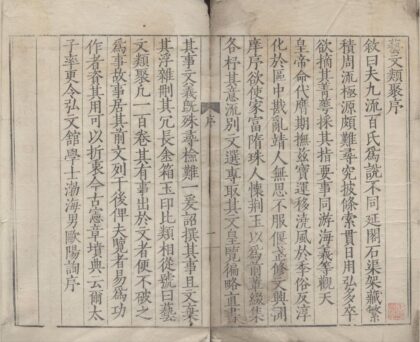 藝文類聚序
敘曰夫九流百氏為說不同延閣石渠架藏繁
積周流極源頗難尋究披條索貫日用弘多卒
欲摘其菁華採其指要事同游海義等觀天
皇帝命代膺期撫茲寶運移澆風於季俗反淳
化於區中戡亂靖人無思不服偃武修文興開
庠序欲使家富隋珠人懷荊玉以為前輩綴集
各杼其意流別文選專取其文皇覽徧略直書
序
其事文義既殊尋檢難一爰詔撰其事且文棄
其浮雜刪其冗長金箱玉印比類相從號曰藝
文類聚凡一百卷其有事出於文者便不破之
為事故事居其前文列于後俾夫覽者易為功
作者資其用可以折衷今古憲章墳典云爾太
子率更令弘文館學士渤海男歐陽詢序